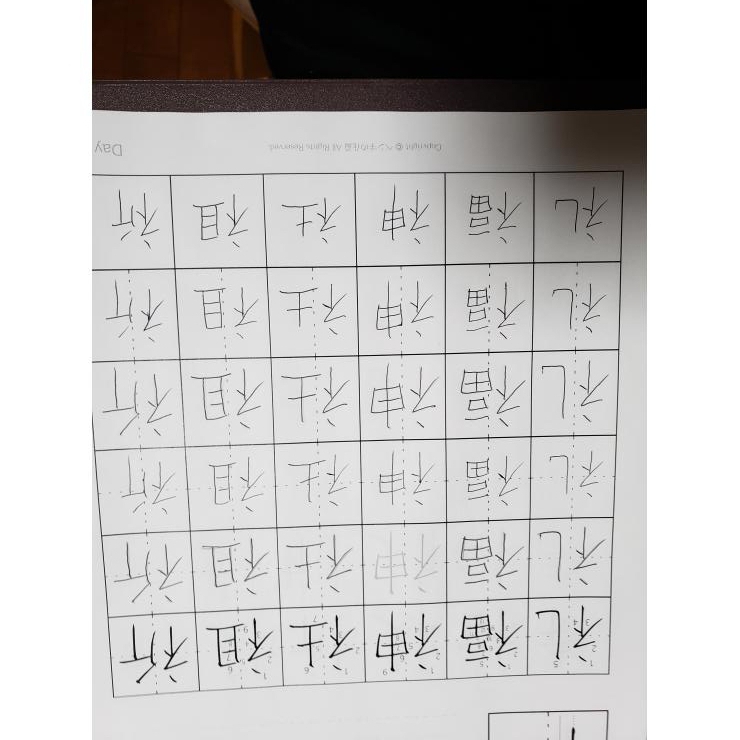 礼 福 神 社 祖 祈
礼 福 神 社 祖 祈
礼 福 神 社 祖 祈
礼 福 神 社 祖 祈
礼 福 神 社 祖 祈
礼 福 神 社 祖 祈
Copyright © ペン字の All Rights Reserved.
Day